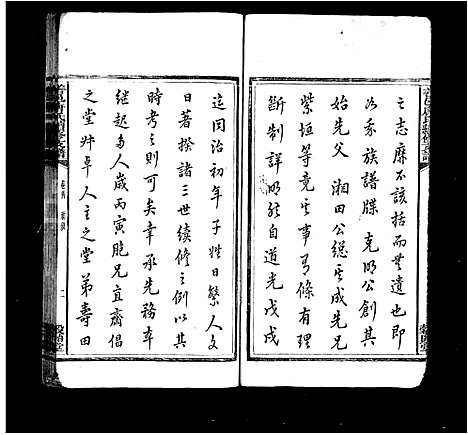 之志靡不該括而無遺也即
以吾族譜牒 克明公創其
始先父 湘田公總其成先兄
紫垣等竟其事有條有理
斷制詳明然自道光戊戌
迄同治初年子姓日繁人文
日著揆諸三世續修之例以其
時考之則可矣幸承先務本
繼起多人歲丙寅胞兄宜齋倡
之堂姪卓人主之堂弟壽田